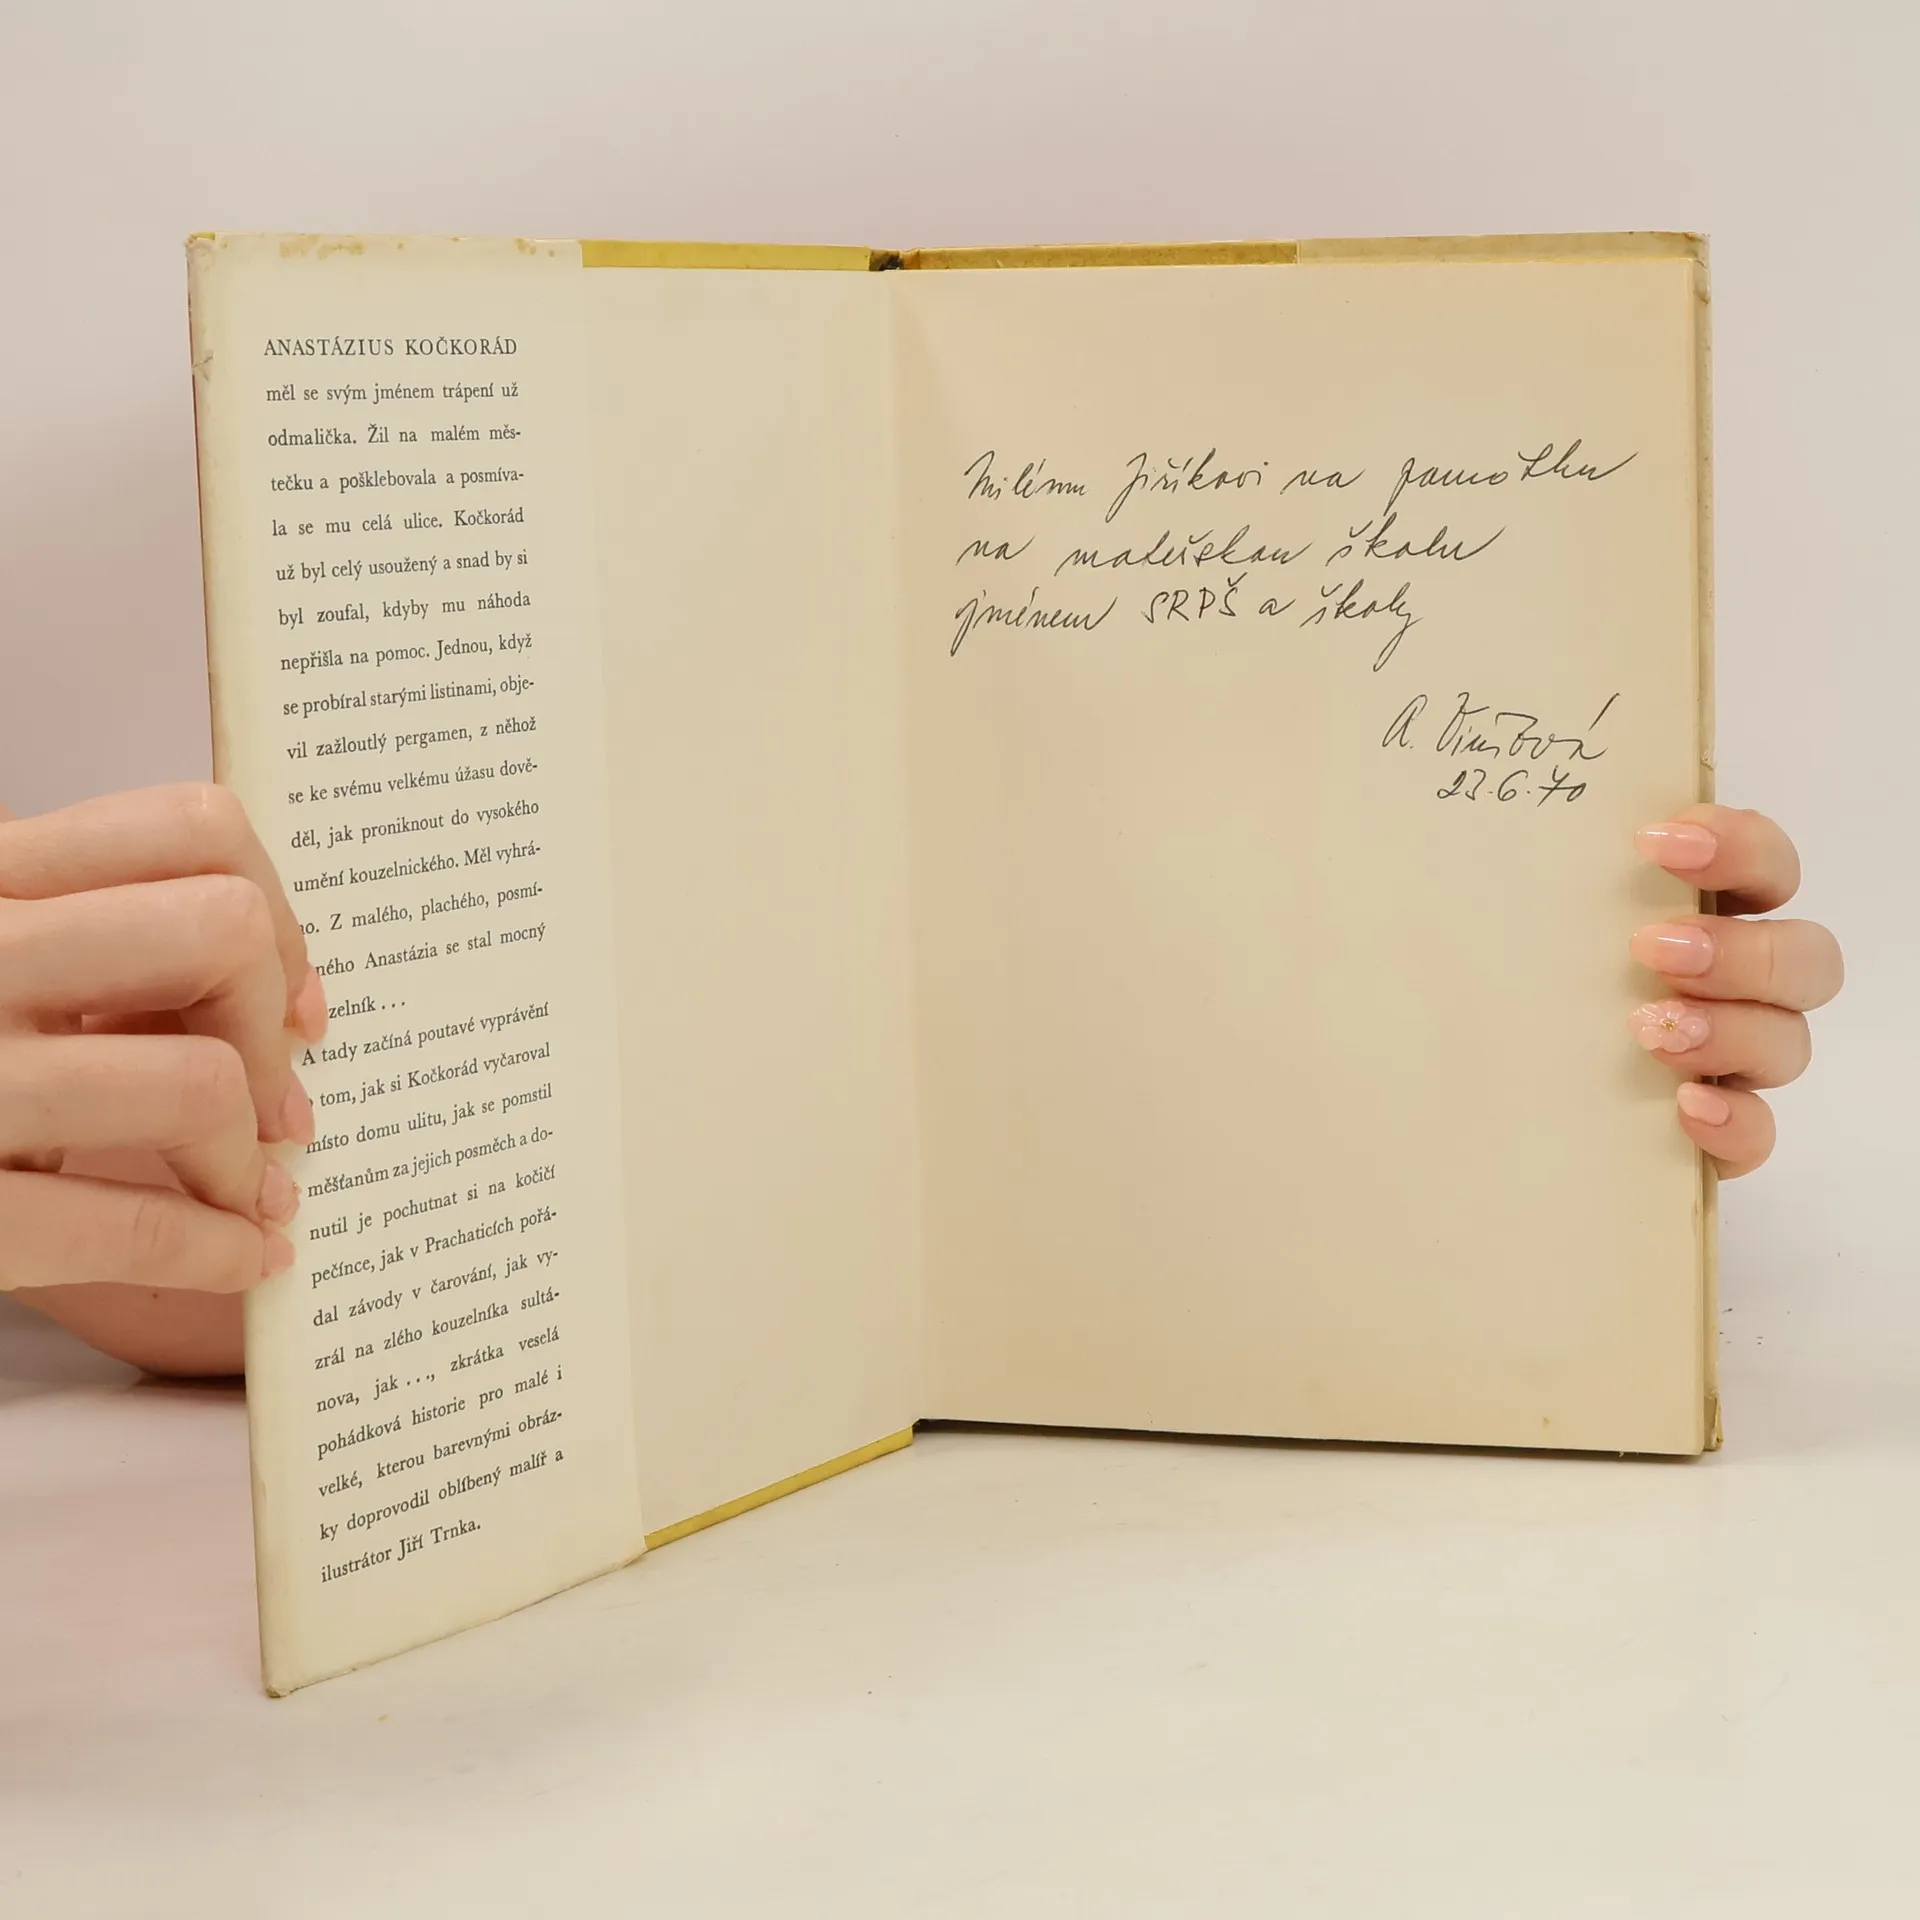 ANASTÁZIUS KOČKORÁD
měl se svým jménem trápení už
odmalička. Žil na malém měs-
tečku a pošklebovala a posmíva-
la se mu celá ulice. Kočkorád
už byl celý usoužený a snad by si
byl zoufal, kdyby mu náhoda
nepřišla na pomoc. Jednou, když
se probíral starými listinami, obje-
vil zažloutlý pergamen, z něhož
se ke svému velkému úžasu dově-
děl, jak proniknout do vysokého
umění kouzelnického. Měl vyhrá-
no. Z malého, plachého, posmí-
ného Anastázia se stal mocný
zelník...
A tady začíná poutavé vyprávění
o tom, jak si Kočkorád vyčaroval
místo domu ulitu, jak se pomstil
měšťanům za jejich posměch a do-
nutil je pochutnat si na kočičí
pečínce, jak v Prachaticích pořá-
dal závody v čarování, jak vy-
zrál na zlého kouzelníka sultá-
nova, jak ..., zkrátka veselá
pohádková historie pro malé i
velké, kterou barevnými obráz-
ky doprovodil oblíbený malíř a
ilustrátor Jiří Trnka.
Milému Jiříkovi na památku
na mateřskou školu
jménem SRPŠ a školy
A.
23.6.70